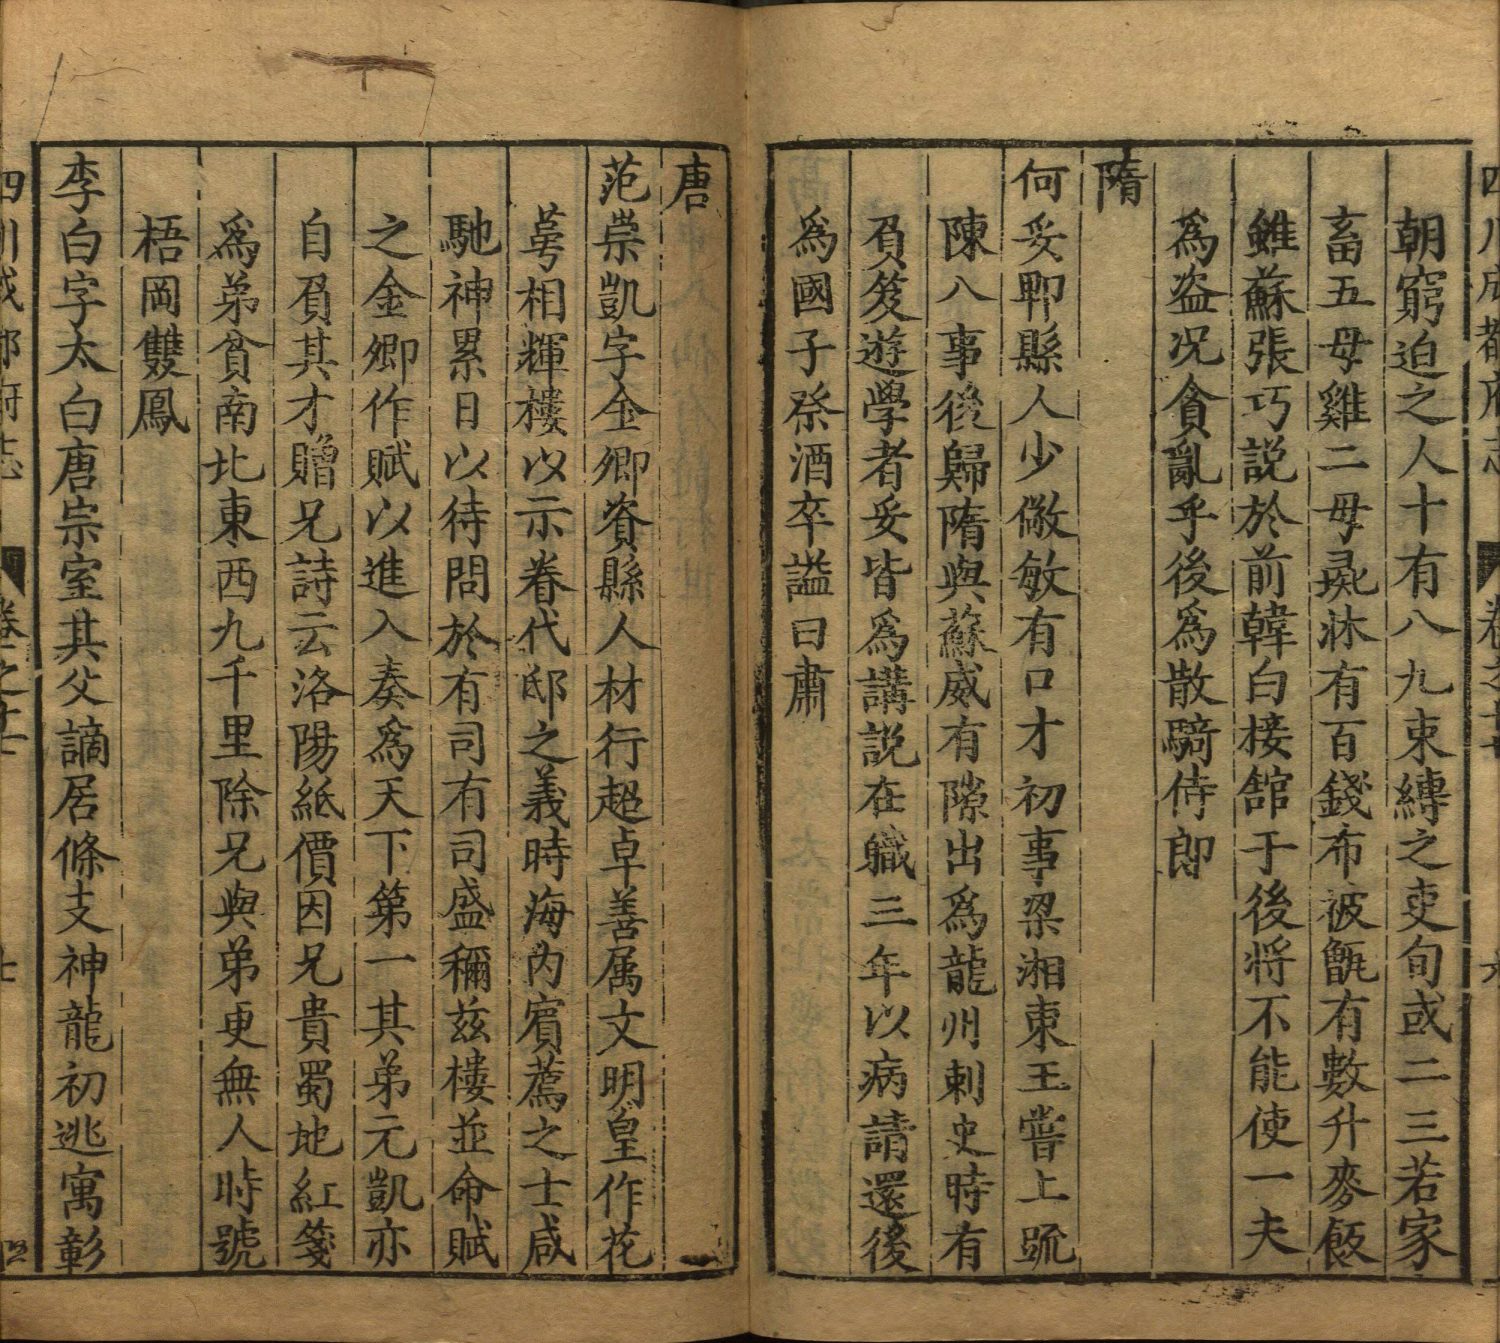 四川成都府志
卷之十
六
朝窮迫之人十有八九束縛之吏旬或二三若家
畜五母雞二母彘牀有百錢布被甑有數升麥飯
雖蘇張巧説於前韓白按劄于後將不能使一夫
為盗况貪亂乎後為散騎侍郎
隋
何妥郫縣人少儆敏有口才初事梁湘東王嘗上䟽
陳八事後歸隋與蘇威有隙出爲龍州刺史時有
負笈遊學者妥皆爲講説在職三年以病請還後
為國子祭酒卒謚曰肅
唐
范崇凱字金卿資縣人材行超卓善属文明皇作花
萼相輝樓以示眷代邸之義時海內賓薦之士咸
馳神累日以待問於有司有司盛稱兹樓並命賦
之金卿作賦以進入奏爲天下第一其弟元凱亦
自負其才贈兄詩云洛陽紙價因兄貴蜀地紅箋
爲弟貧南北東西九千里除兄與弟更無人時號
梧岡雙鳳
李白字太白唐宗室其父謫居條支神龍初逃寓彰
四川成都府志
卷之十
七